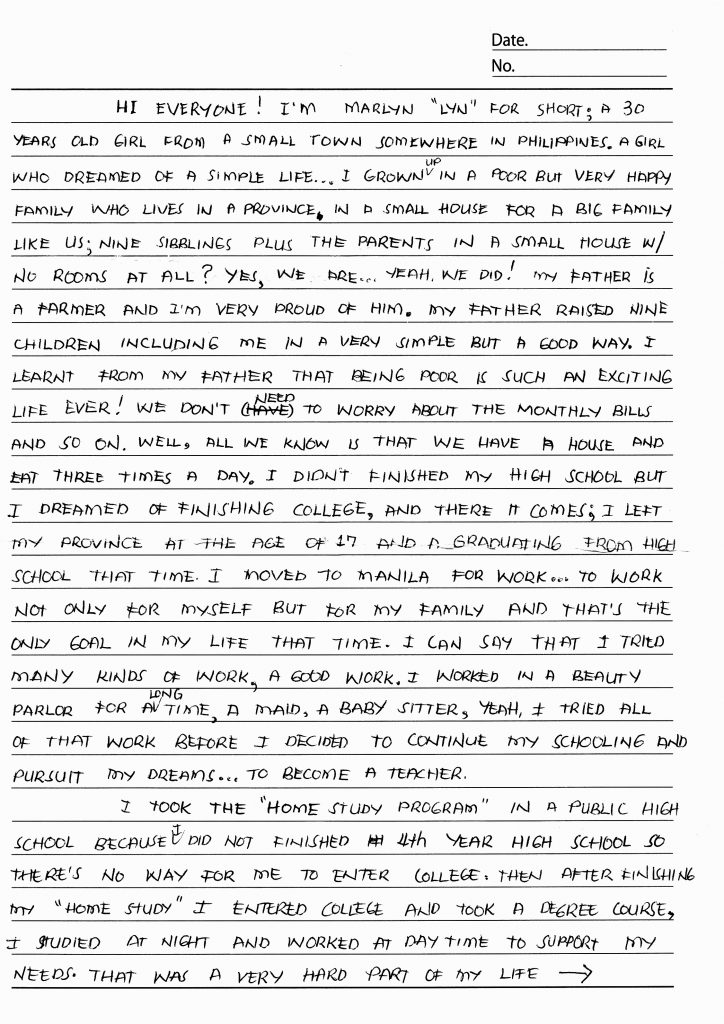 Date.
No.
HI EVERYONE! I'M MARLYN "LYN" FOR SHORT; A 30
YEARS OLD GIRL FROM A SMALL TOWN SOMEWHERE IN PHILIPPINES. A GIRL
WHO DREAMED OF A SIMPLE LIFE... I GROWN UP IN A POOR BUT VERY HAPPY
FAMILY WHO LIVES IN A PROVINCE, IN A SMALL HOUSE FOR A BIG FAMILY
LIKE US; NINE SIBBLINGS PLUS THE PARENTS IN A SMALL HOUSE W/
NO ROOMS AT ALL? YES, WE ARE... YEAH. WE DID! MY FATHER IS
A FARMER AND I'M VERY PROUD OF HIM. MY FATHER RAISED NINE
CHILDREN INCLUDING ME IN A VERY SIMPLE BUT A GOOD WAY. I
LEARNT FROM MY FATHER THAT BEING POOR IS SUCH AN EXCITING
LIFE EVER! WE DON'T (HAVE) NEED TO WORRY ABOUT THE MONTHLY BILLS
AND SO ON. WELL, ALL WE KNOW IS THAT WE HAVE A HOUSE AND
EAT THREE TIMES A DAY. I DIDN'T FINISHED MY HIGH SCHOOL BUT
I DREAMED OF FINISHING COLLEGE, AND THERE IT COMES; I LEFT
MY PROVINCE AT THE AGE OF 17 AND A GRADUATING FROM HIGH
SCHOOL THAT TIME. I MOVED TO MANILA FOR WORK... TO WORK
NOT ONLY FOR MYSELF BUT FOR MY FAMILY AND THAT'S THE
ONLY GOAL IN MY LIFE THAT TIME. I CAN SAY THAT I TRIED
MANY KINDS OF WORK, A GOOD WORK. I WORKED IN A BEAUTY
PARLOR FOR A LONG TIME, A MAID, A BABY SITTER, YEAH, I TRIED ALL
OF THAT WORK BEFORE I DECIDED TO CONTINUE MY SCHOOLING AND
PURSUIT MY DREAMS... TO BECOME A TEACHER.
I TOOK THE "HOME STUDY PROGRAM" IN A PUBLIC HIGH
SCHOOL BECAUSE I DID NOT FINISHED 4th YEAR HIGH SCHOOL SO
THERE'S NO WAY FOR ME TO ENTER COLLEGE. THEN AFTER FINISHING
MY "HOME STUDY" I ENTERED COLLEGE AND TOOK A DEGREE COURSE,
I STUDIED AT NIGHT AND WORKED AT DAY TIME TO SUPPORT MY
NEEDS. THAT WAS A VERY HARD PART OF MY LIFE →